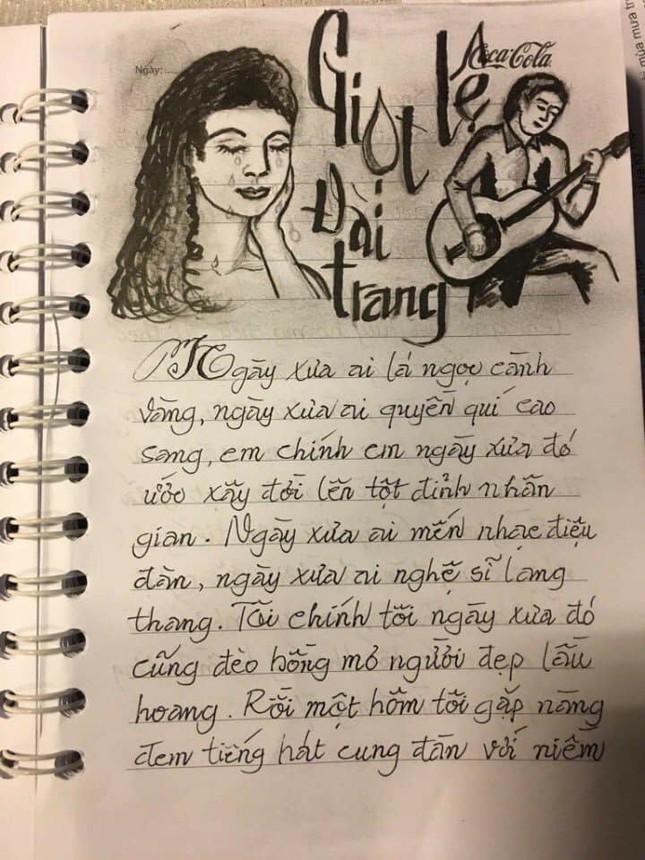 Ngày:
Coca-Cola
Giọt lệ
Đài
trang
Ngày xưa ai lá ngọc cành
vàng, ngày xưa ai quyền quí cao
sang, em chính em ngày xưa đó
ước xây đời lên tột đỉnh nhân
gian. Ngày xưa ai mến nhạc điệu
đàn, ngày xưa ai nghệ sĩ lang
thang. Tôi chính tôi ngày xưa đó
cũng đèo bồng mơ người đẹp lầu
hoang. Rồi một hôm tôi gặp nàng
đem tiếng hát cung đàn với niềm